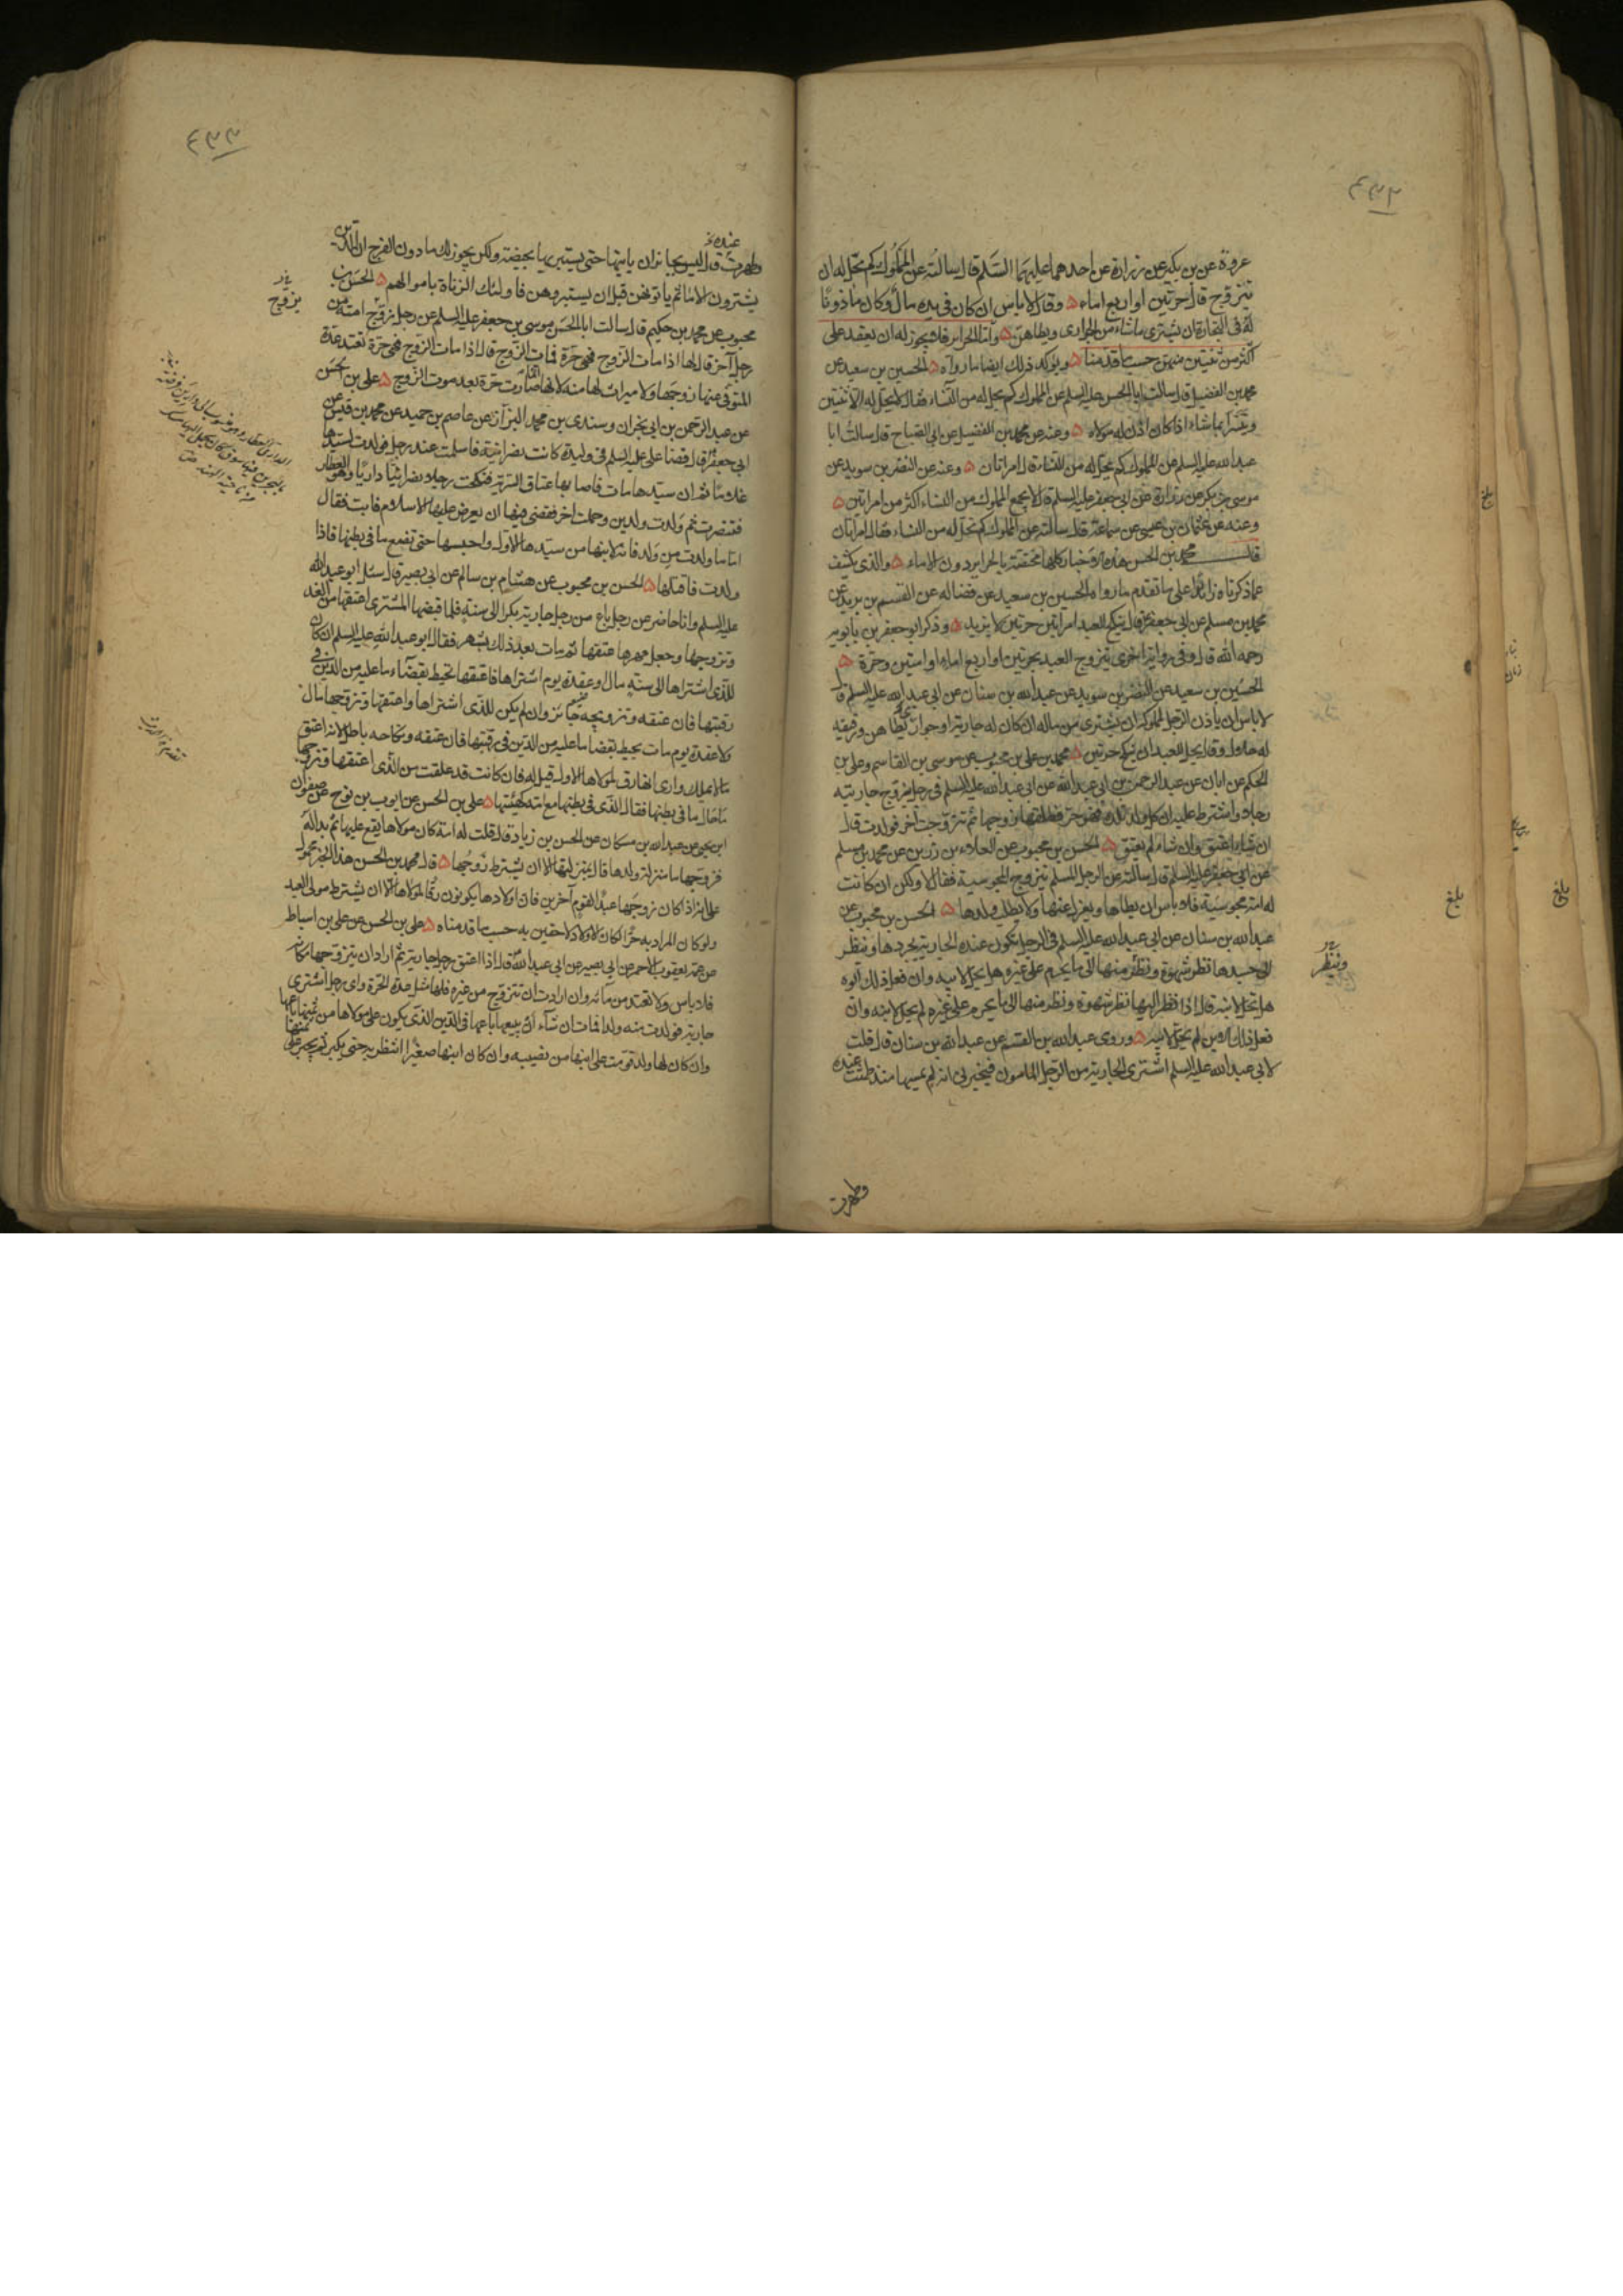 ٤٣٢
عروة عن بن بكير عن زرارة عن احدهما عليهما السّلم قال سالته عن المملوك كم يحلّ له ان
يتزوج قال حرتين او اربع اماء ۵ وقال لا باس ان كان في يده مال وكان ماذونًا
له في التجارة ان يشتري ماشاء من الجواري ويطاهنّ ۵ وامّا الحراير فلا يجوز له ان يعقد على
اكثر من ثنتين منهن حسب ما قدّمنا ۵ ويؤكد ذلك ايضا ما رواه ۵ الحسين بن سعيد عن
محمد بن الفضيل قال سالت ابا الحسن عليه السلم عن المملوك كم يحل له من النّساء فقال لا يحل له الا ثنتين
ويتسرّا بماشاء اذا كان اذن له مولاه ۵ وعنه عن محمد بن الفضيل عن ابي الصّباح قال سالت ابا
عبد الله عليه السلم عن المملوك كم يحل له من النساء قال امراتان ۵ وعنه عن النضر بن سويد عن
موسى بن بكر عن زرارة عن ابي جعفر عليه السلم قال لا يجمع المملوك من النساء اكثر من امراتين ۵
وعنه عن عثمان بن عيسى عن سماعة قال سالته عن المملوك كم يحل له من النساء فقال امراتان
قال محمد بن الحسن هذه الاخبار كلها مختصة بالحراير دون الاماء ۵ والذي يكشف
عما ذكرناه زائدًا على ما تقدم ما رواه الحسين بن سعيد عن فضاله عن القسم بن بريد عن
محمد بن مسلم عن ابي جعفر قال ينكح العبد امراتين حرتين لا يزيد ۵ وذكر ابو جعفر بن بابويه
رحمه الله قال وفي رواية اخرى يتزوج العبد بحرتين او اربع اماء او امتين وحرّة ۵
الحسين بن سعيد عن النضر بن سويد عن عبد الله بن سنان عن ابي عبد الله عليه السلم قال
لا باس ان ياذن الرجل لمملوكه ان يشتري من ماله ان كان له جارية او جوار يطاهن ورقيقه
له حلال وقال يحل للعبد ان ينكح حرتين ۵ محمد بن علي بن محبوب عن موسى بن القاسم وعلي بن
الحكم عن ابان عن عبد الرحمن بن ابي عبد الله عن ابي عبد الله عليه السلم في رجل يزوج جاريته
رجلا واشترط عليه ان كل ولد تلده فهو حر فطلقها زوجها ثم تزوجت آخر فولدت قال
ان شاء اعتق وان شاء لم يعتق ۵ الحسن بن محبوب عن العلاء بن رزين عن محمد بن مسلم
عن ابي جعفر عليه السلم قال سالته عن الرجل المسلم يتزوج المجوسية فقال لا ولكن ان كانت
له امة مجوسية فلا باس ان يطاها ويعزل عنها ولا يطلب ولدها ۵ الحسن بن محبوب عن
عبد الله بن سنان عن ابي عبد الله عليه السلم في الرجل تكون عنده الجارية يجردها وينظر
الى جسدها نظر شهوة ونظر منها الى ما يحرم على غيره هل يحل لابيه وان فعل ذلك ابوه
هل تحل لابنه قال اذا نظر اليها نظر شهوة ونظر منها الى ما يحرم على غيره لم يحل لابنه وان
فعل ذلك الابن لم يحل لابيه ۵ وروى عبد الله بن القسم عن عبد الله بن سنان قال قلت
لابي عبد الله عليه السلم اشتري الجارية من الرّجل المامون فيخبرني انه لم يمسها منذ طمثت عنده
وينظر
بلغ
بلغ
بلغ
وطهرت
٤٣٣
عنده
وطهرت قال ليس بجائز ان ياتيها حتى يستبريها بحيضة ولكن يجوز لك ما دون الفرج ان الذين
يشترون الاماء ثم ياتونهن قبل ان يستبروهن فاولئك الزناة باموالهم ۵ الحسن بن
محبوب عن محمد بن حكيم قال سالت ابا الحسن موسى بن جعفر عليه السلم عن رجل زوّج امته من
رجل آخر قال لها اذا مات الزوج فهي حرّة فمات الزّوج قال اذا مات الزوج فهي حرّة تعتد عدّة
المتوفى عنها زوجها ولا ميراث لها منه لانها انما صارت حرّة بعد موت الزّوج ۵ علي بن الحسن
عن عبد الرحمن بن ابي نجران وسندي بن محمد البزاز عن عاصم بن حميد عن محمد بن قيس عن
ابي جعفر قال قضا علي عليه السلم في وليدة كانت نصرانية فاسلمت عند رجل فولدت لسيدها
غلاما ثم ان سيّدها مات فاصابها عتاق السّرية فنكحت رجلا نصرانيّا داريّا وهو العطار
فتنصرت ثم ولدت ولدين وحملت آخر فقضى فيها ان يعرض عليها الاسلام فابت فقال
امّا ما ولدت من ولد فانه لابنها من سيّدها الاول واحبسها حتى تضع ما في بطنها فاذا
ولدت فاقتلها ۵ الحسن بن محبوب عن هشام بن سالم عن ابي بصير قال سئل ابو عبد الله
عليه السلم وانا حاضر عن رجل باع من رجل جارية بكرا الى سنة فلما قبضها المشتري اعتقها من الغد
وتزوجها وجعل مهرها عتقها ثم مات بعد ذلك بشهر فقال ابو عبد الله عليه السلم ان كان
للذي اشتراها الى سنة مال او عقدة يوم اشتراها فاعتقها تحيط بقضاء ما عليه من الدّين في
رقبتها فان عتقه وتزويجه جائز وان لم يكن للذي اشتراها واعتقها وتزوجها مال
ولا عقدة يوم مات يحيط بقضا ما عليه من الدّين في رقبتها فان عتقه ونكاحه باطل لانه اعتق
ما لا يملك وارى انها رق لمولاها الاول قيل له فان كانت قد علقت من الذي اعتقها وتزوجها
ما حال ما في بطنها فقال الذي في بطنها مع امّه كهيئتها ۵ علي بن الحسن عن ايوب بن نوح عن صفوان
ابن يحيى عن عبد الله بن مسكان عن الحسن بن زياد قال قلت له امة كان مولاها يقع عليها ثم بدا له
فزوجها ما منزلة ولدها قال بمنزلتها الا ان يشترط زوجها ۵ قال محمد بن الحسن هذا الخبر محمول
على انه اذا كان زوجها عبدًا لقوم آخرين فان اولادها يكونون رقًا لمولاها الّا ان يشترط مولى العبد
ولو كان المراد به حرًا لكان الاولاد لاحقين به حسب ما قدمناه ۵ علي بن الحسن عن علي بن اسباط
عن عمه يعقوب الاحمر عن ابي بصير عن ابي عبد الله قال اذا اعتق رجل جارية ثم اراد ان يتزوجها مكانه
فلا باس ولا تعتد من مائه وان ارادت ان تتزوج من غيره فلها مثل عدة الحرّة واي رجل اشترى
جارية فولدت منه ولدا فمات ان شاء ان يبيعها باعها في الدّين الذي يكون على مولاها من ثمنها باعها
وان كان لها ولد قوّمت على ابنها من نصيبه وان كان ابنها صغيرا انتظر به حتى يكبر ثم يجبر على ثمنها
يزوج